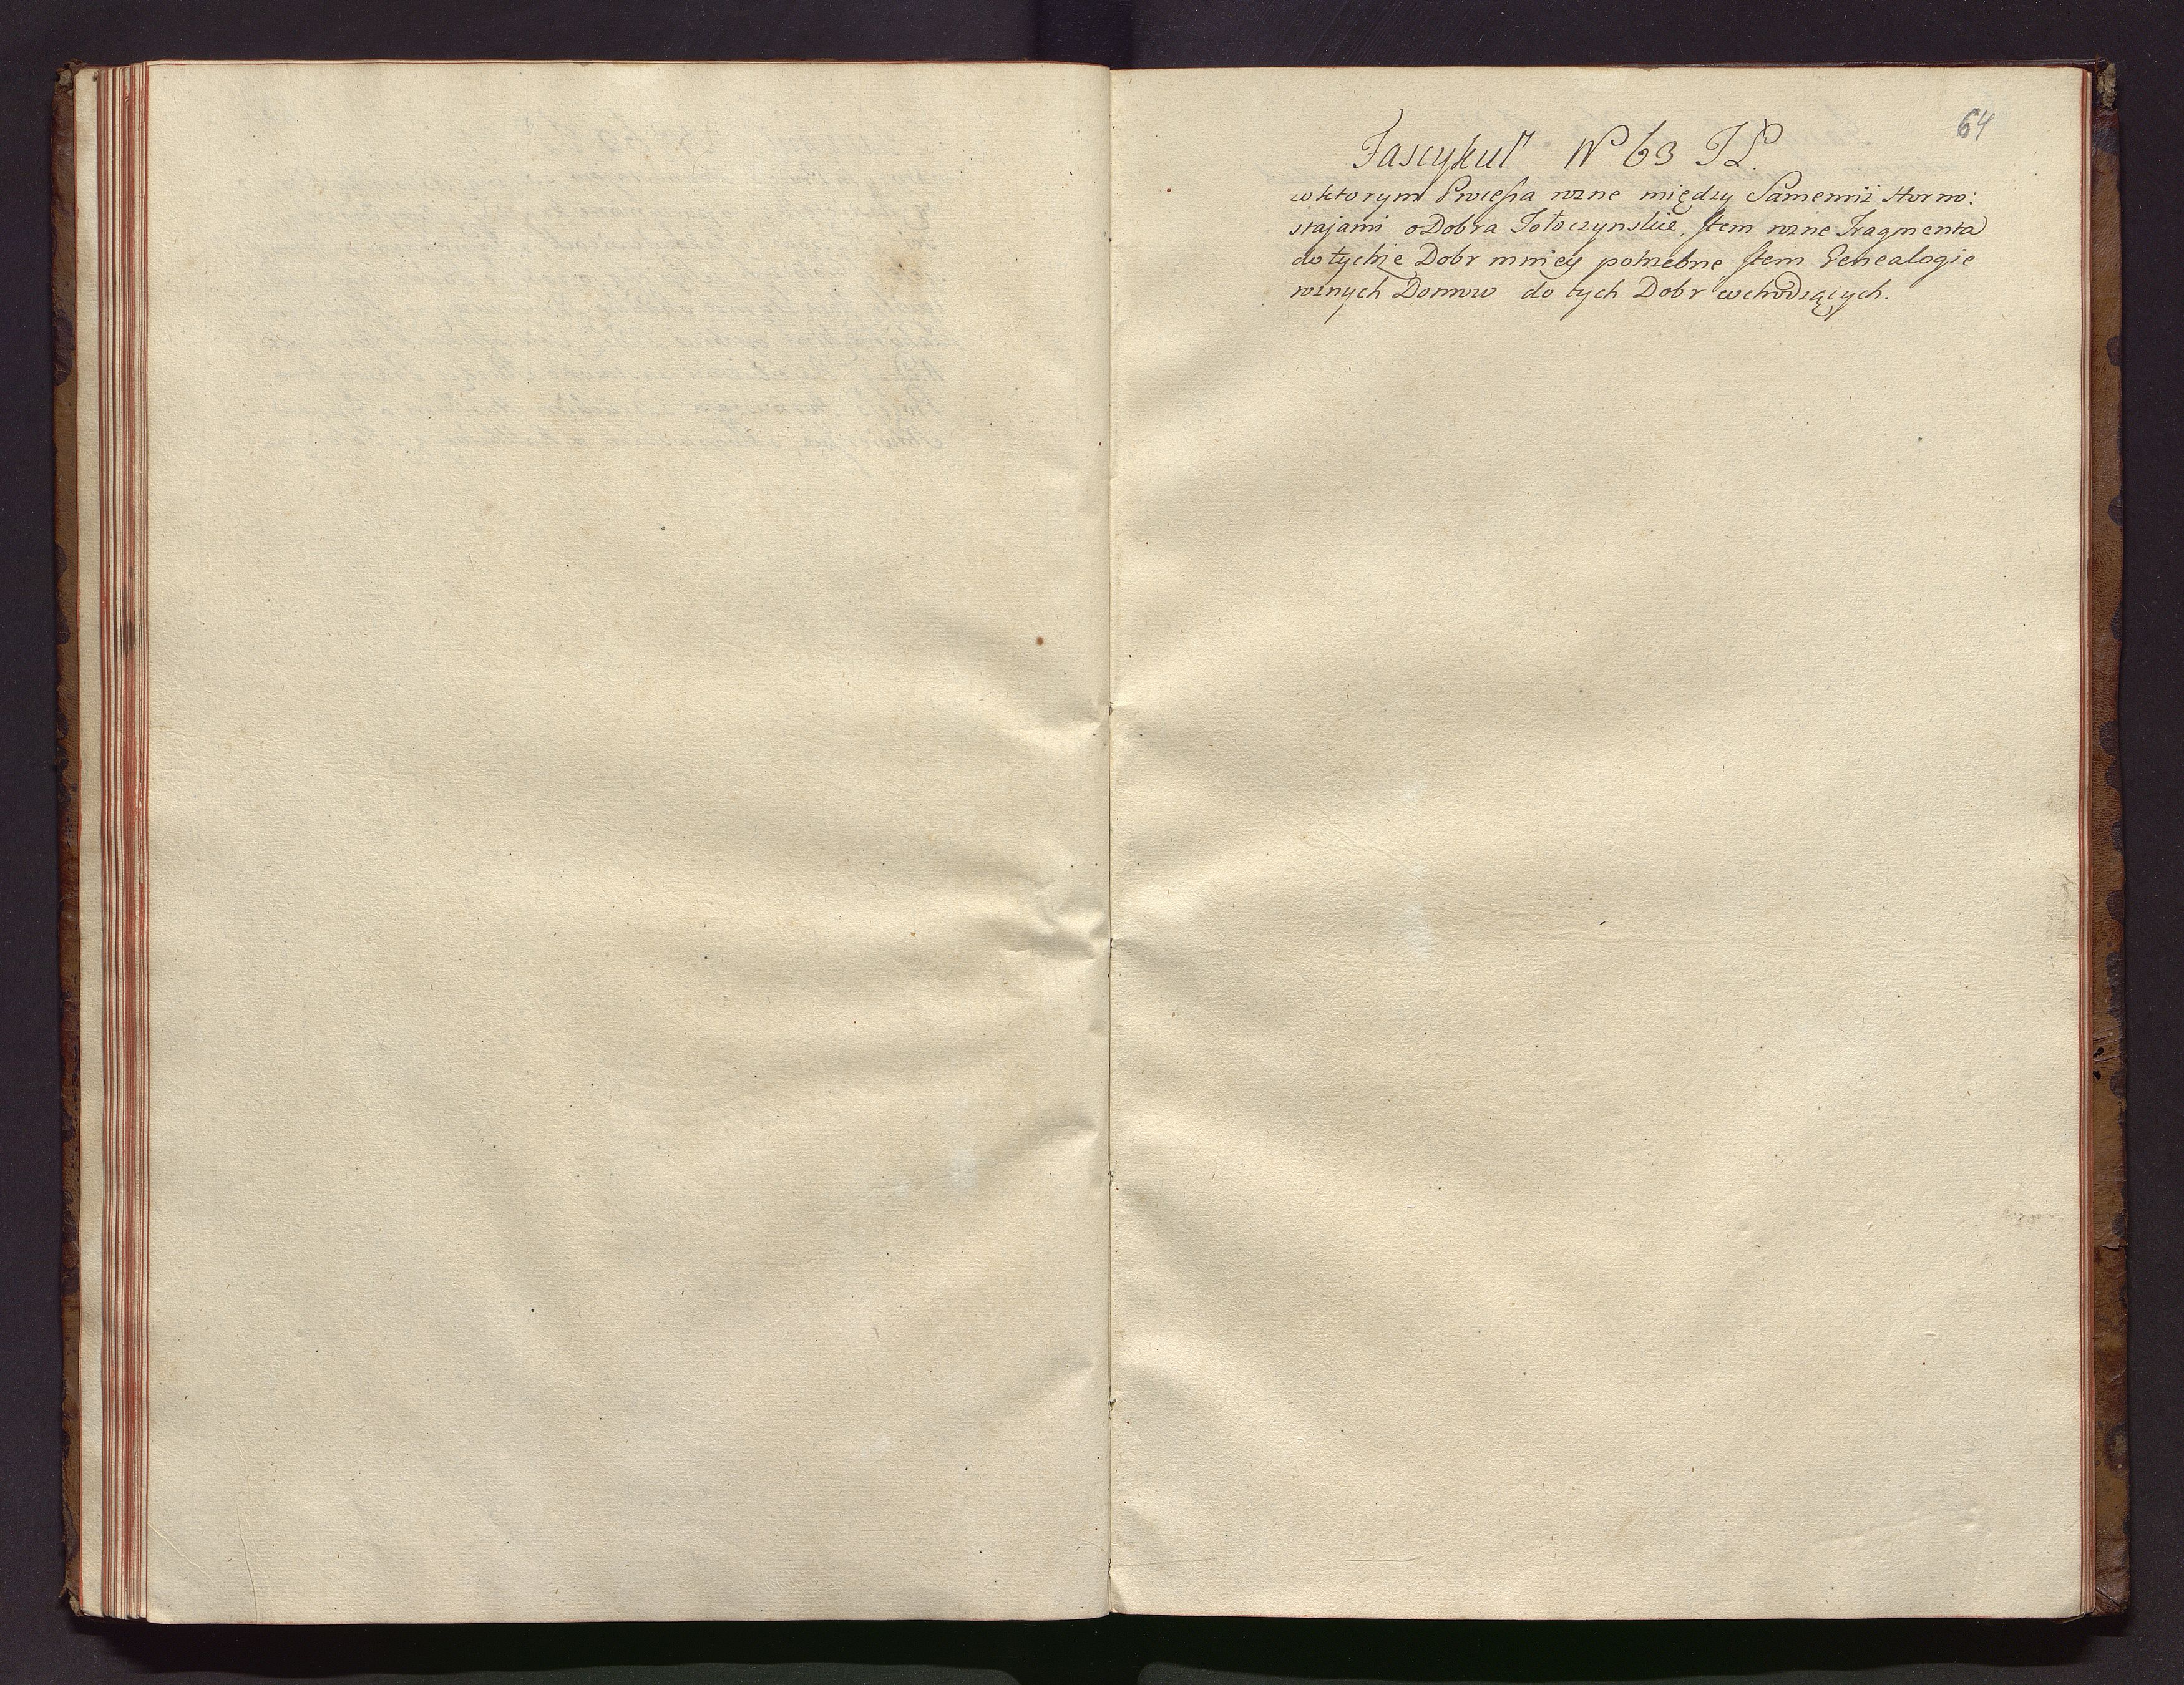 64
Fascykuł N 63 TL.
w ktorym Processa rozne między Samemiż Horno:
stajami o Dobra Tołoczynskie, Item rozne Fragmenta
do tychże Dobr mniey potrzebne Item Genealogie
roznych Domow do tych Dobr wchodzących.